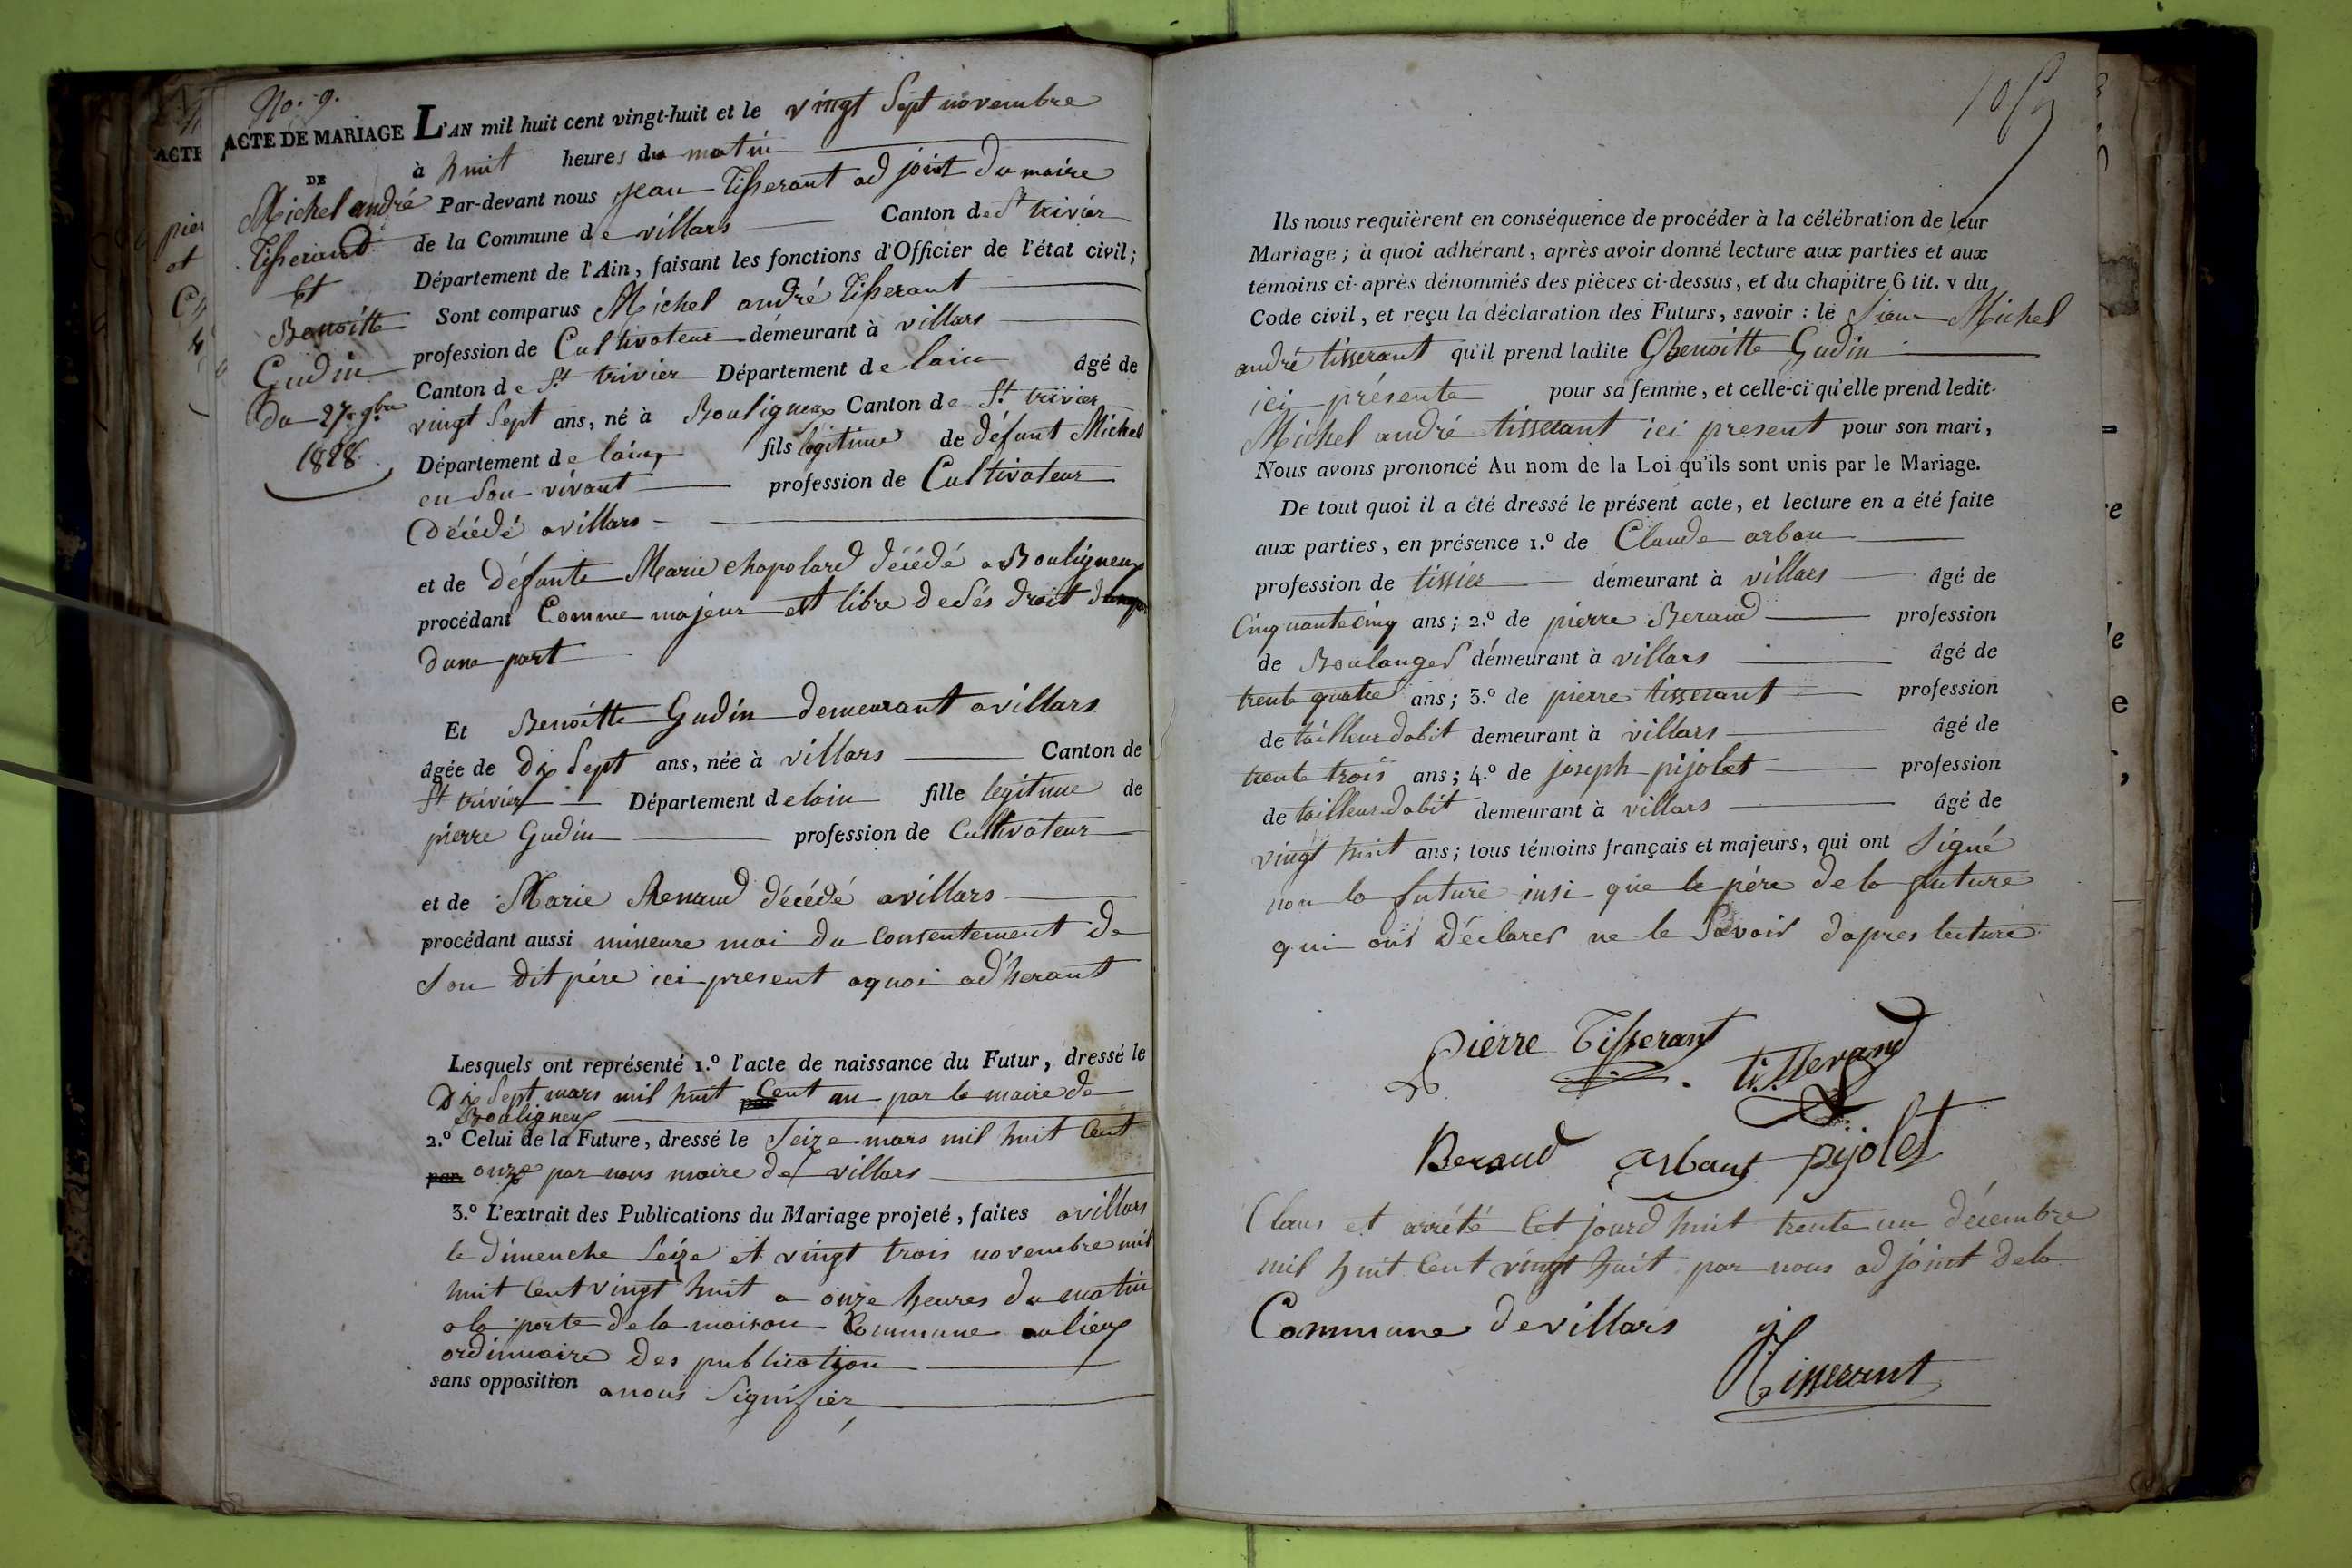 No. 9.
ACTE DE MARIAGE
DE
Michel andré
Tisserand
Et
Benoitte
Gudin
Du 27. 9bre
1828
L'AN mil huit cent vingt-huit et le vingt Sept novembre
à huit heures du matin
Par-devant nous jean Tisserant adjoint du maire
de la Commune de villars Canton de St trivier
Département de l'Ain, faisant les fonctions d'Officier de l'état civil;
Sont comparus Michel andré Tisserant
profession de Cultivateur demeurant à villars
Canton de St trivier Département de lain âgé de
vingt Sept ans, né à Bouligneux Canton de St trivier
Département de lain fils légitime de défunt Michel
en Son vivant profession de Cultivateur
Décédé a villars
et de défunte Marie chapolard décédé a Bouligneux
procédant Comme majeur et libre de Sés droit
dune part
Et Benoitte Gudin demeurant a villars
âgée de dix Sept ans, née à villars Canton de
St trivier Département de lain fille légitime de
pierre Gudin profession de Cultivateur
et de Marie Renaud décédé a villars
procédant aussi mineure moi du Consentement de
Son dit père ici present a quoi ad'herant
Lesquels ont représenté 1.º l'acte de naissance du Futur, dressé le
Dix Sept mars mil huit par Cent un par le maire de
Bouligneux
2.º Celui de la Future, dressé le Seize mars mil huit Cent
par onze par nous maire de villars
3.º L'extrait des Publications du Mariage projeté, faites a villars
le dimenche Seize et vingt trois novembre mil
huit Cent vingt huit a onze heures du matin
a la porte de la maison Commune au lieux
ordinnaire des publication
sans opposition a nous Signifier
Ils nous requièrent en conséquence de procéder à la célébration de leur
Mariage; à quoi adhérant, après avoir donné lecture aux parties et aux
témoins ci-après dénommés des pièces ci-dessus, et du chapitre 6 tit. v du
Code civil, et reçu la déclaration des Futurs, savoir : le Sieur Michel
andré tisserant qu'il prend ladite Benoitte Gudin
ici présente pour sa femme, et celle-ci qu'elle prend ledit
Michel andré tisserant ici present pour son mari,
Nous avons prononcé Au nom de la Loi qu'ils sont unis par le Mariage.
De tout quoi il a été dressé le présent acte, et lecture en a été faite
aux parties, en présence 1.º de Claude arban
profession de tissier demeurant à villars âgé de
Cinquante cinq ans; 2.º de pierre Beraud profession
de Boulanger demeurant à villars âgé de
trente quatre ans; 3.º de pierre tisserant profession
de tailleur dabit demeurant à villars âgé de
trente trois ans; 4.º de joseph pijolet profession
de tailleur dabit demeurant à villars âgé de
vingt huit ans; tous témoins français et majeurs, qui ont Signé
non la future insi que le père de la future
qui ont déclarer ne le Savoir dapres lecture
pierre Tisserant
tisserand
Beraud arbant pijolet
Claus et arrété Cet jourd huit trente un décembre
mil huit Cent vingt huit par nous adjoint de la
Commune de villars
j Tisserant